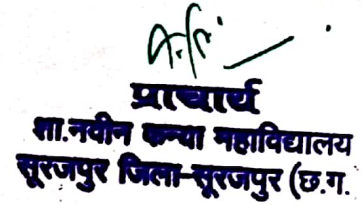 प्राचार्य
शा.नवीन कन्या महाविद्यालय
सूरजपुर जिला-सूरजपुर (छ.ग.